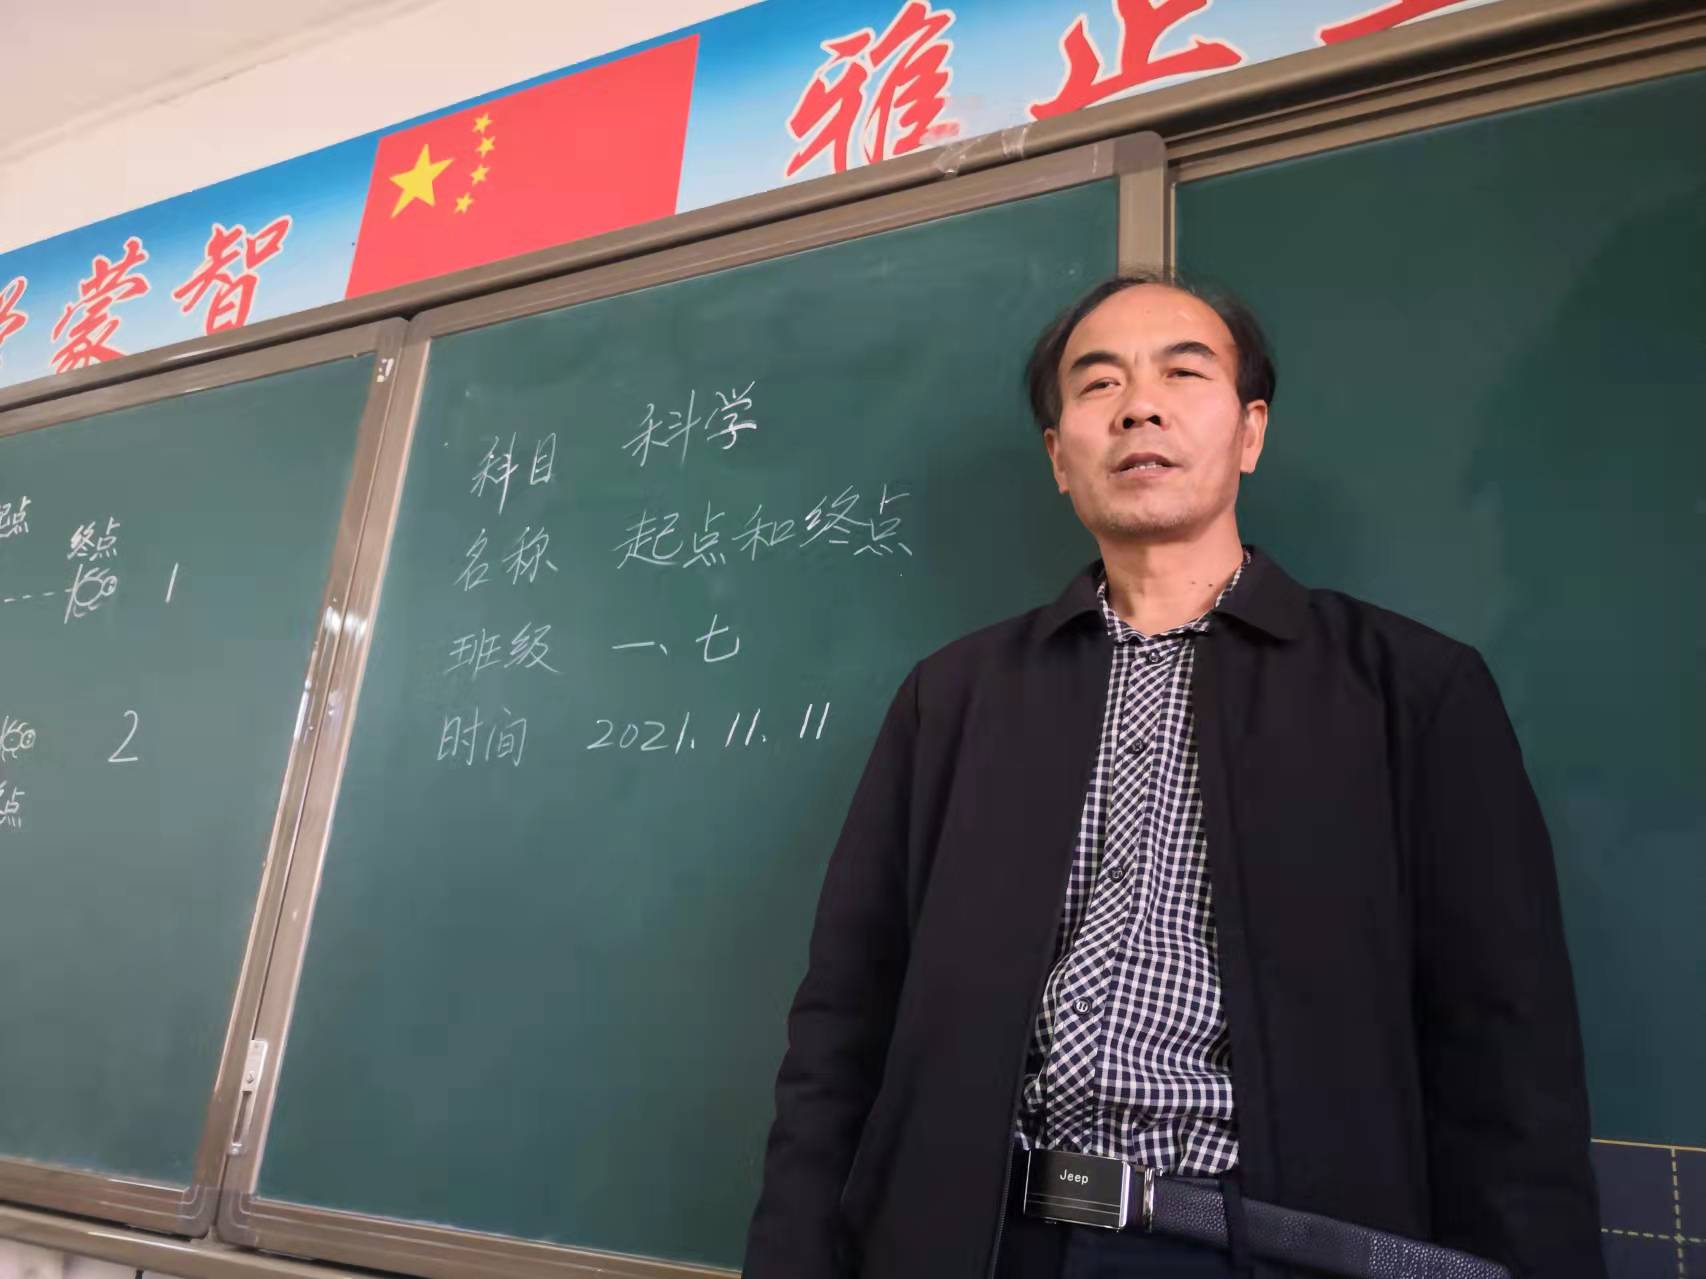 蒙智
雅止
起点
终点
1
2
点
科目 科学
名称 起点和终点
班级 一、七
时间 2021.11.11
Jeep